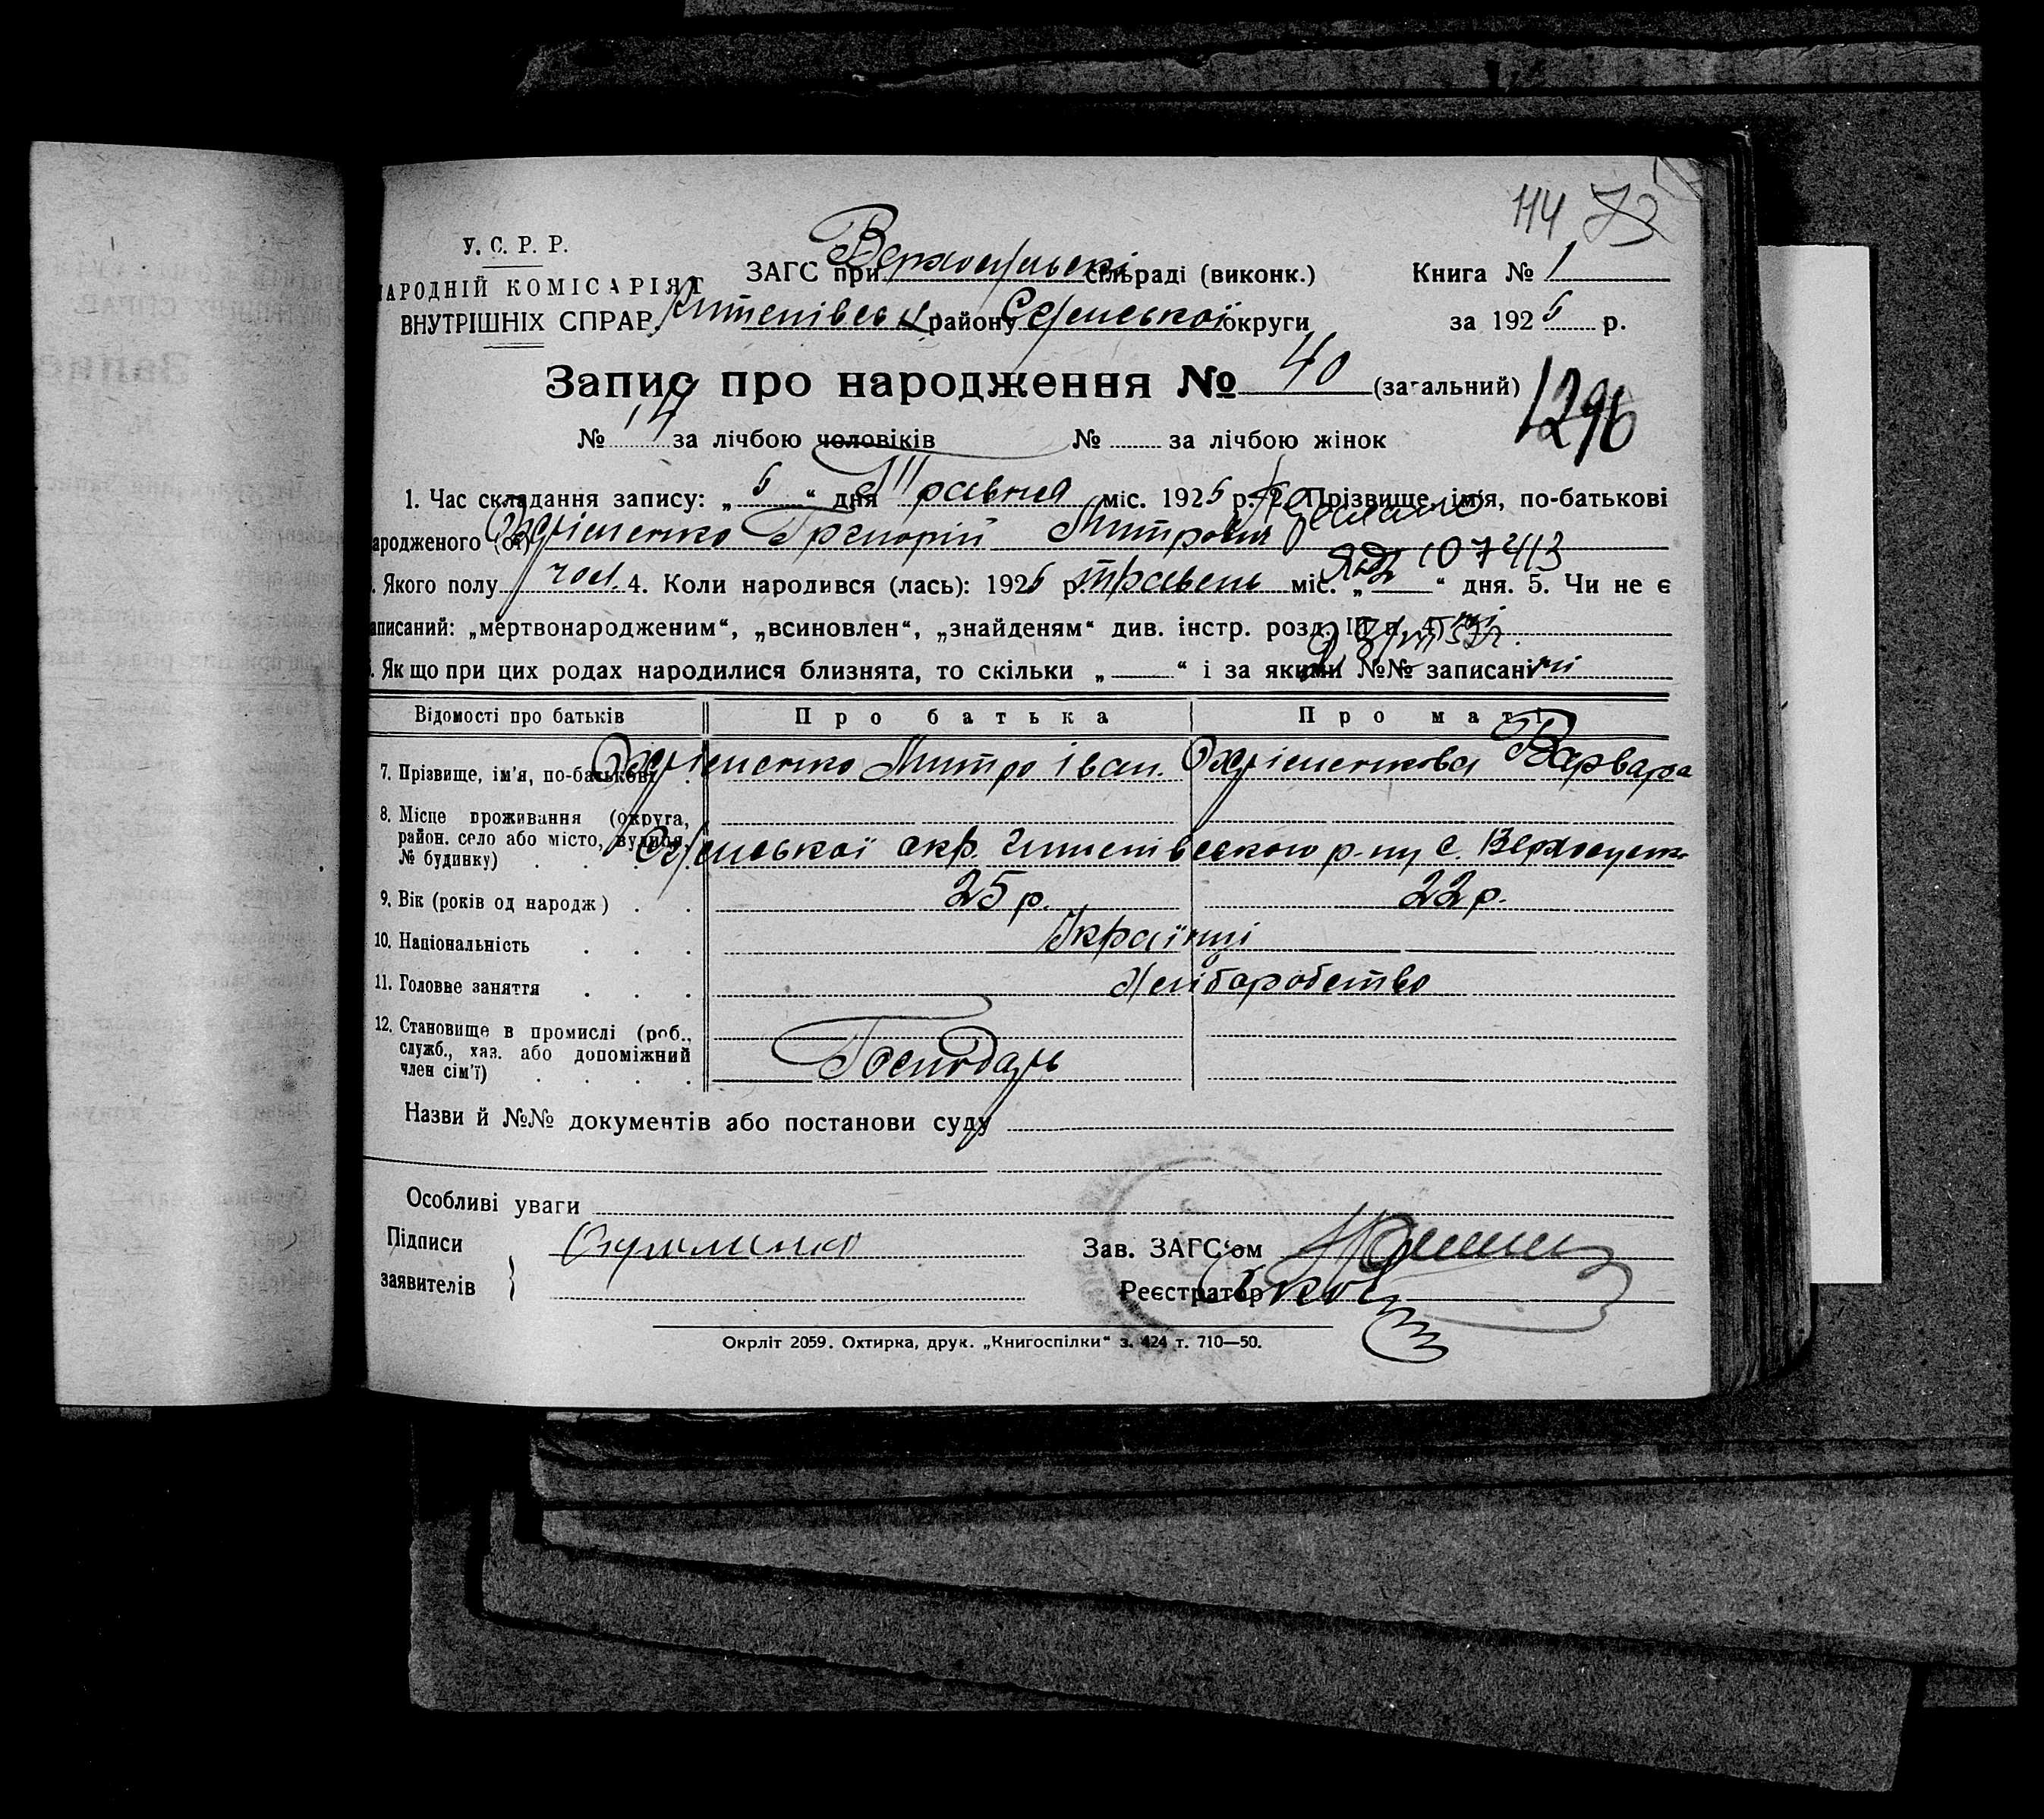 114 73
У. С. Р. Р.
НАРОДНІЙ КОМІСАРІЯТ
ВНУТРІШНІХ СПРАВ
ЗАГС при Верхосульські сільраді (виконк.)
Штепівськ району Сумської округи
Книга № 1
за 1926 р.
Запис про народження № 40 (загальний)
1296
№ 14 за лічбою чоловіків № за лічбою жінок
1. Час складання запису: „ 6 “ дня Травня міс. 1926 р. 2. Прізвище, ім'я, по-батькові
народженого (ої) Охріменко Григорій Митрович
ЯЮ 107413
3. Якого полу чол. 4. Коли народився (лась): 1926 р. травень міс. „ 2 “ дня. 5. Чи не є
записаний: „мертвонародженим“, „всиновлен“, „знайденям“ див. інстр. розд. III п. 4 ні
6. Якщо при цих родах народилися близнята, то скільки „ “ і за якими №№ записані ні
Відомості про батьків Про батька Про матір
7. Прізвище, ім'я, по-батькові Охріменко Митро Іван. Охріменкова Варвара
8. Місце проживання (округа, район. село або місто, вулиця, № будинку) Сумської окр. Штепівського р-ну с. Верхосулка
9. Вік (років од народж) 25 р. 22 р.
10. Національність Українці
11. Головне заняття Хліборобство
12. Становище в промислі (роб., служб., хаз. або допоміжний член сім'ї) Господарь
Назви й №№ документів або постанови суду
Особливі уваги
Підписи
заявителів
Охрименко
Зав. ЗАГС'ом
Реєстратор
Окрліт 2059. Охтирка, друк. „Книгоспілки“ з. 424 т. 710—50.